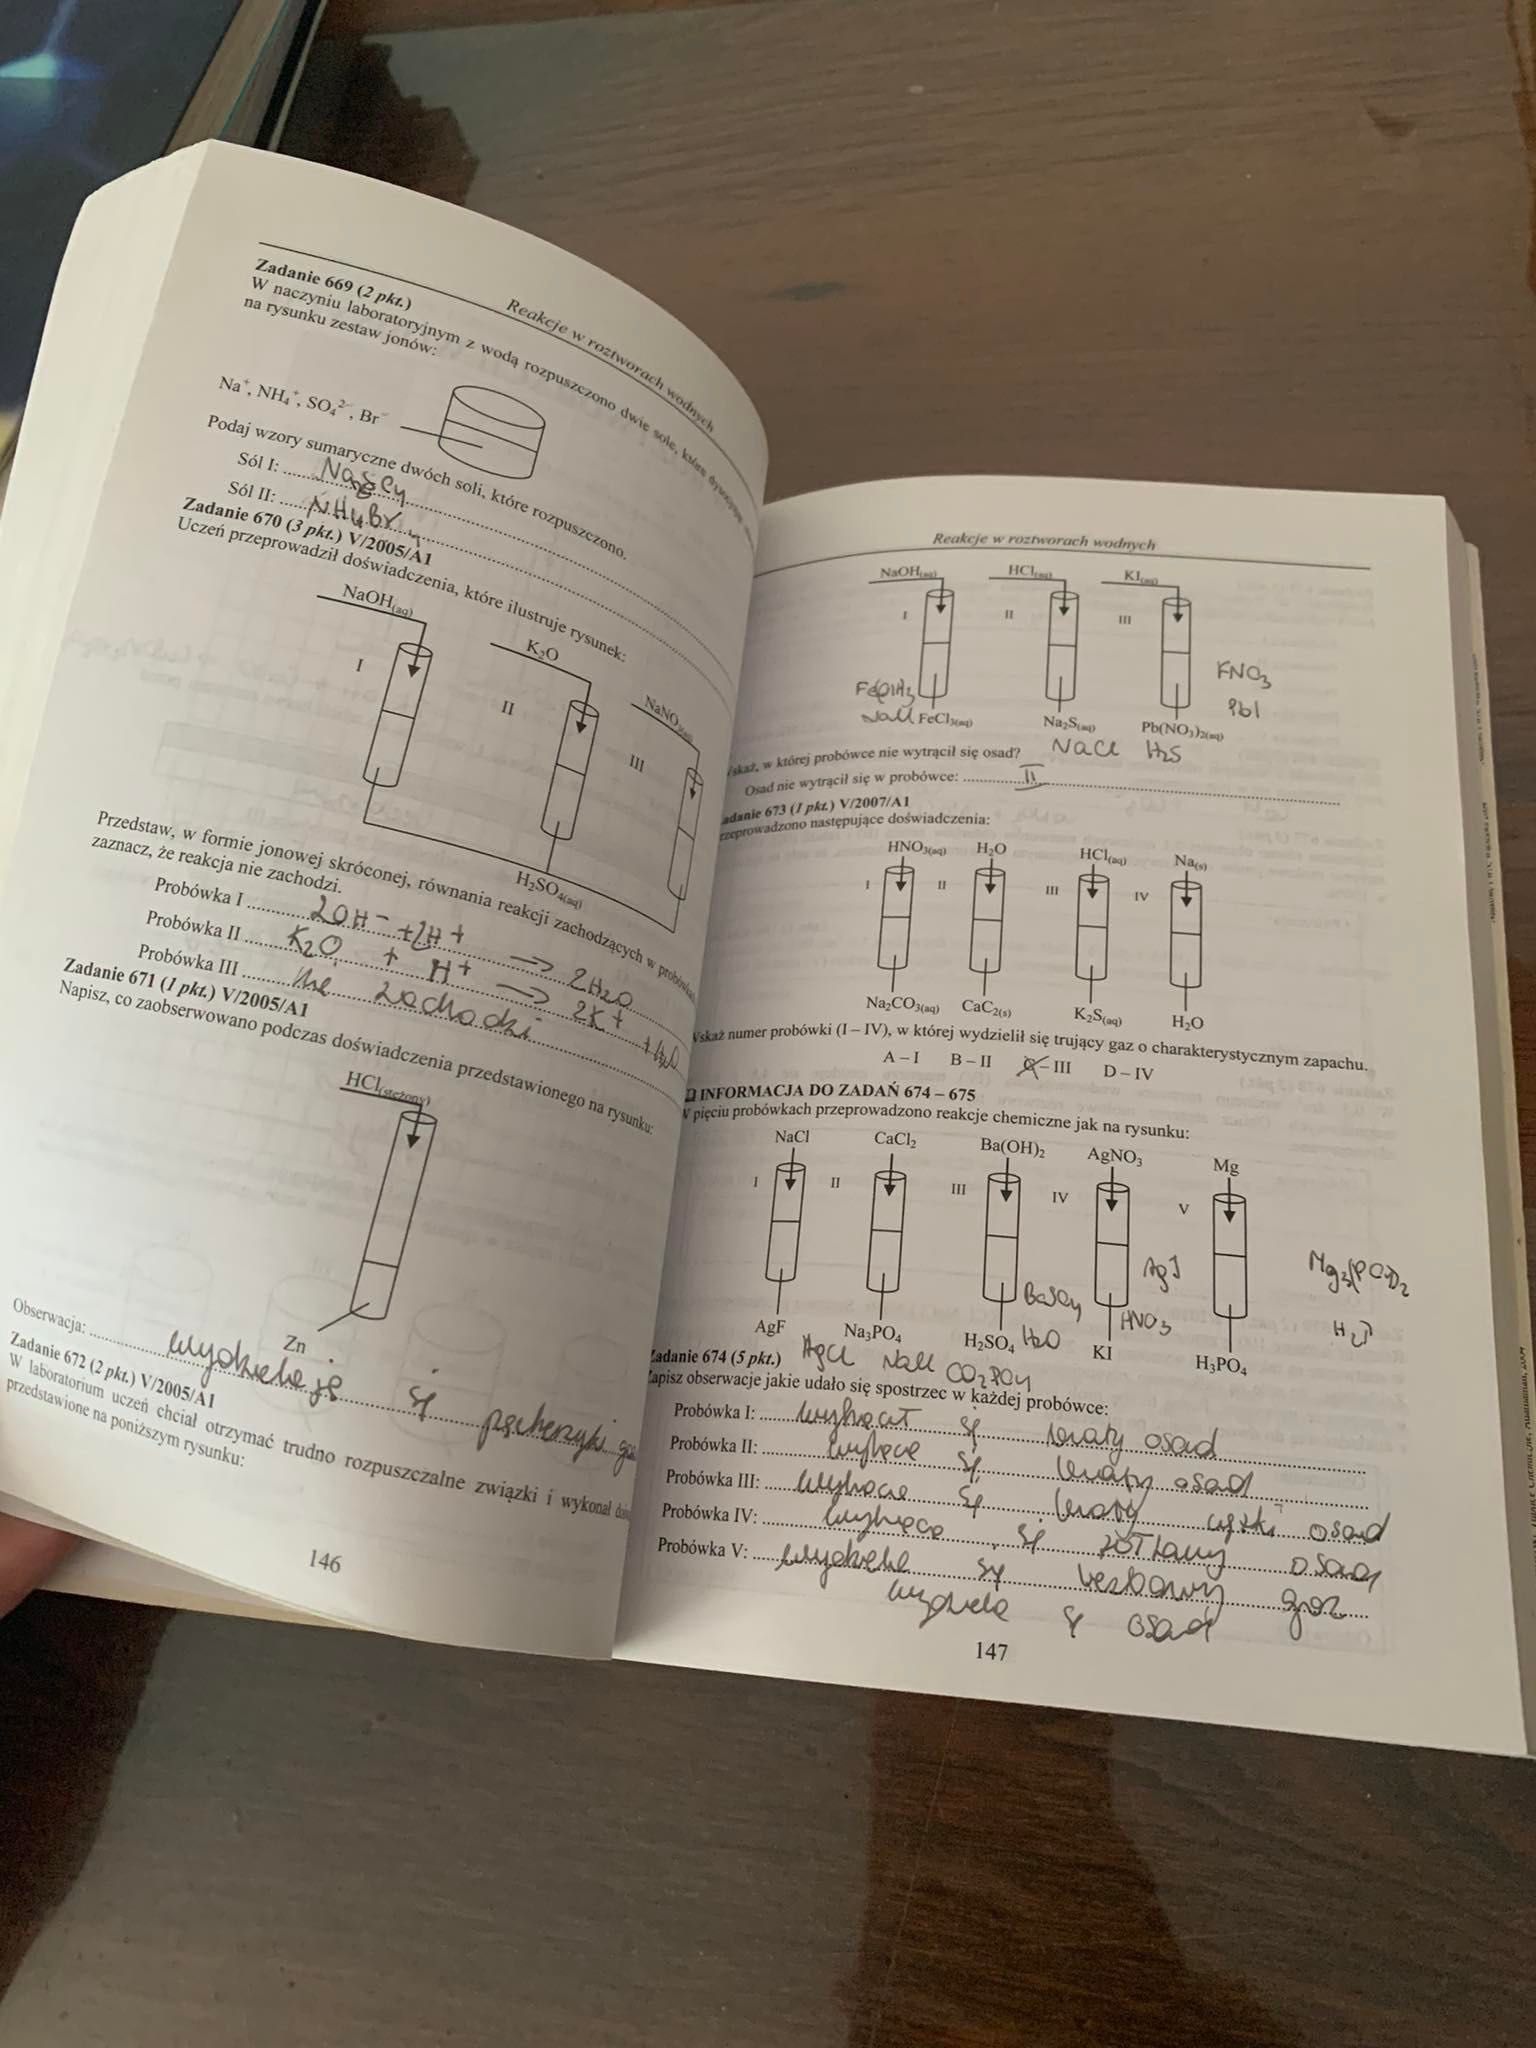 Reakcje w roztworach wodnych
Zadanie 669 (2 pkt.)
W naczyniu laboratoryjnym z wodą rozpuszczono dwie sole, które dysocjując
na rysunku zestaw jonów:
Na⁺, NH₄⁺, SO₄²⁻, Br⁻
Podaj wzory sumaryczne dwóch soli, które rozpuszczono.
Sól I:
Sól II: NH4Br
Zadanie 670 (3 pkt.) V/2005/A1
Uczeń przeprowadził doświadczenia, które ilustruje rysunek:
NaOH(aq)
K₂O
I
II
III
H₂SO₄(aq)
Przedstaw, w formie jonowej skróconej, równania reakcji zachodzących w probówkach
zaznacz, że reakcja nie zachodzi.
Probówka I 2OH⁻ + 2H⁺ → 2H₂O
Probówka II K₂O + H⁺ → 2K⁺ + H₂O
Probówka III nie zachodzi
Zadanie 671 (1 pkt.) V/2005/A1
Napisz, co zaobserwowano podczas doświadczenia przedstawionego na rysunku:
HCl(stężony)
Zn
Obserwacja: wydzielają się pęcherzyki
Zadanie 672 (2 pkt.) V/2005/A1
W laboratorium uczeń chciał otrzymać trudno rozpuszczalne związki i wykonał
przedstawione na poniższym rysunku:
146
Reakcje w roztworach wodnych
NaOH(aq) HCl(aq) KI(aq)
I II III
KNO₃
Fe(OH)₃ PbI
FeCl₃(aq) Na₂S(aq) Pb(NO₃)₂(aq)
NaCl H₂S
w której probówce nie wytrącił się osad?
Osad nie wytrącił się w probówce: II
673 (1 pkt.) V/2007/A1
następujące doświadczenia:
HNO₃(aq) H₂O HCl(aq) Na(s)
I II III IV
Na₂CO₃(aq) CaC₂(s) K₂S(aq) H₂O
numer probówki (I – IV), w której wydzielił się trujący gaz o charakterystycznym zapachu.
A – I B – II C – III D – IV
INFORMACJA DO ZADAŃ 674 – 675
W pięciu probówkach przeprowadzono reakcje chemiczne jak na rysunku:
NaCl CaCl₂ Ba(OH)₂ AgNO₃ Mg
I II III IV V
AgI Mg₃(PO₄)₂
BaSO₄ HNO₃ H₂↑
AgF Na₃PO₄ H₂SO₄ H₂O KI H₃PO₄
AgCl NaCl
Zadanie 674 (5 pkt.)
Zapisz obserwacje jakie udało się spostrzec w każdej probówce:
Probówka I: wytrącił się biały osad
Probówka II: wytrąca się biały osad
Probówka III: wytrąca się biały osad
Probówka IV: wytrąca się żółtawy osad
Probówka V: wydziela się bezbarwny gaz
wydziela się osad
147